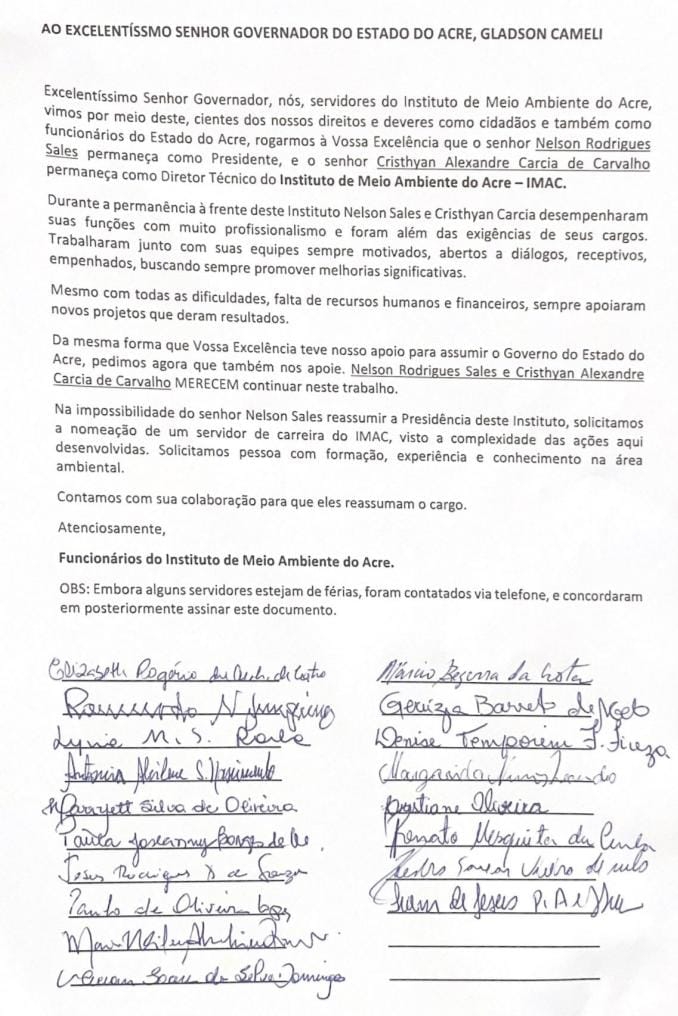 AO EXCELENTÍSSMO SENHOR GOVERNADOR DO ESTADO DO ACRE, GLADSON CAMELI
Excelentíssimo Senhor Governador, nós, servidores do Instituto de Meio Ambiente do Acre,
vimos por meio deste, cientes dos nossos direitos e deveres como cidadãos e também como
funcionários do Estado do Acre, rogarmos à Vossa Excelência que o senhor Nelson Rodrigues
Sales permaneça como Presidente, e o senhor Cristhyan Alexandre Carcia de Carvalho
permaneça como Diretor Técnico do Instituto de Meio Ambiente do Acre – IMAC.
Durante a permanência à frente deste Instituto Nelson Sales e Cristhyan Carcia desempenharam
suas funções com muito profissionalismo e foram além das exigências de seus cargos.
Trabalharam junto com suas equipes sempre motivados, abertos a diálogos, receptivos,
empenhados, buscando sempre promover melhorias significativas.
Mesmo com todas as dificuldades, falta de recursos humanos e financeiros, sempre apoiaram
novos projetos que deram resultados.
Da mesma forma que Vossa Excelência teve nosso apoio para assumir o Governo do Estado do
Acre, pedimos agora que também nos apoie. Nelson Rodrigues Sales e Cristhyan Alexandre
Carcia de Carvalho MERECEM continuar neste trabalho.
Na impossibilidade do senhor Nelson Sales reassumir a Presidência deste Instituto, solicitamos
a nomeação de um servidor de carreira do IMAC, visto a complexidade das ações aqui
desenvolvidas. Solicitamos pessoa com formação, experiência e conhecimento na área
ambiental.
Contamos com sua colaboração para que eles reassumam o cargo.
Atenciosamente,
Funcionários do Instituto de Meio Ambiente do Acre.
OBS: Embora alguns servidores estejam de férias, foram contatados via telefone, e concordaram
em posteriormente assinar este documento.
Elizabeth Rogério de Castro
Raimundo
M. S.
Antonia S. Nascimento
Silva de Oliveira
Paula
Jesus Rodrigues de
Paulo de Oliveira
da Silva Domingos
Márcio Bezerra da Costa
Barreto de
Denise F.
Margarida
Cristiane Oliveira
Renato Mesquita da Cunha
Pedro de
de Jesus P.